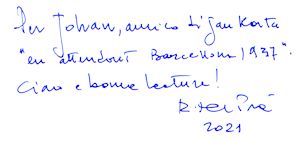 Per Johan, amico di Jan Karta
"en attendant Barcellona, 1937".
Ciao e bonne lecture!
2021